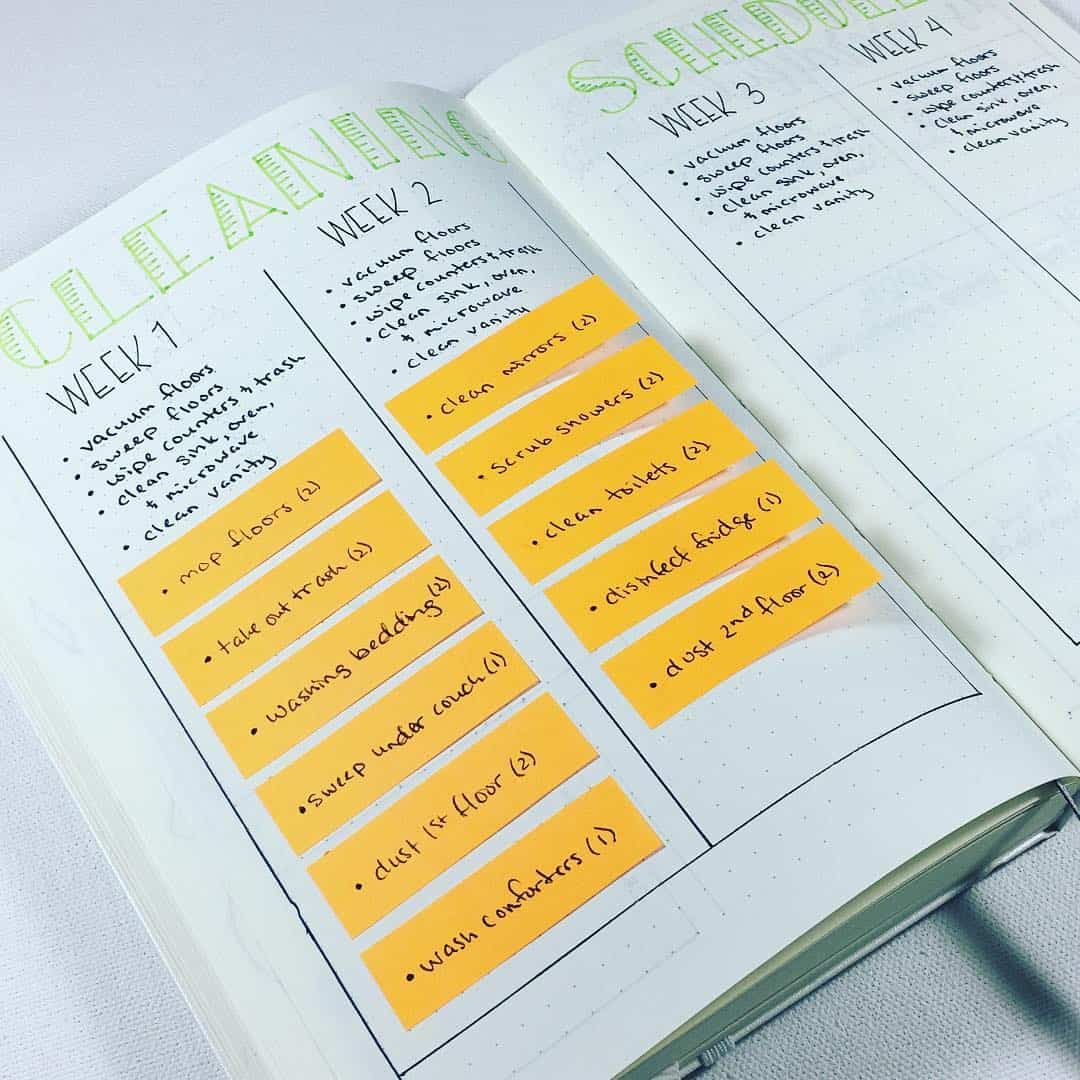 CLEANING SCHEDULE
WEEK 1
• vacuum floors
• sweep floors
• wipe counters & trash
• clean sink, oven,
& microwave
• clean vanity
• mop floors (2)
• take out trash (2)
• washing bedding (2)
• sweep under couch (1)
• dust 1st floor (2)
• wash comforters (1)
WEEK 2
• vacuum floors
• sweep floors
• wipe counters & trash
• clean sink, oven,
& microwave
• clean vanity
• clean mirrors (2)
• scrub showers (2)
• clean toilets (2)
• disinfect fridge (1)
• dust 2nd floor (2)
WEEK 3
• vacuum floors
• sweep floors
• wipe counters & trash
• clean sink, oven,
& microwave
• clean vanity
WEEK 4
• vacuum floors
• sweep floors
• wipe counters & trash
• clean sink, oven,
& microwave
• clean vanity